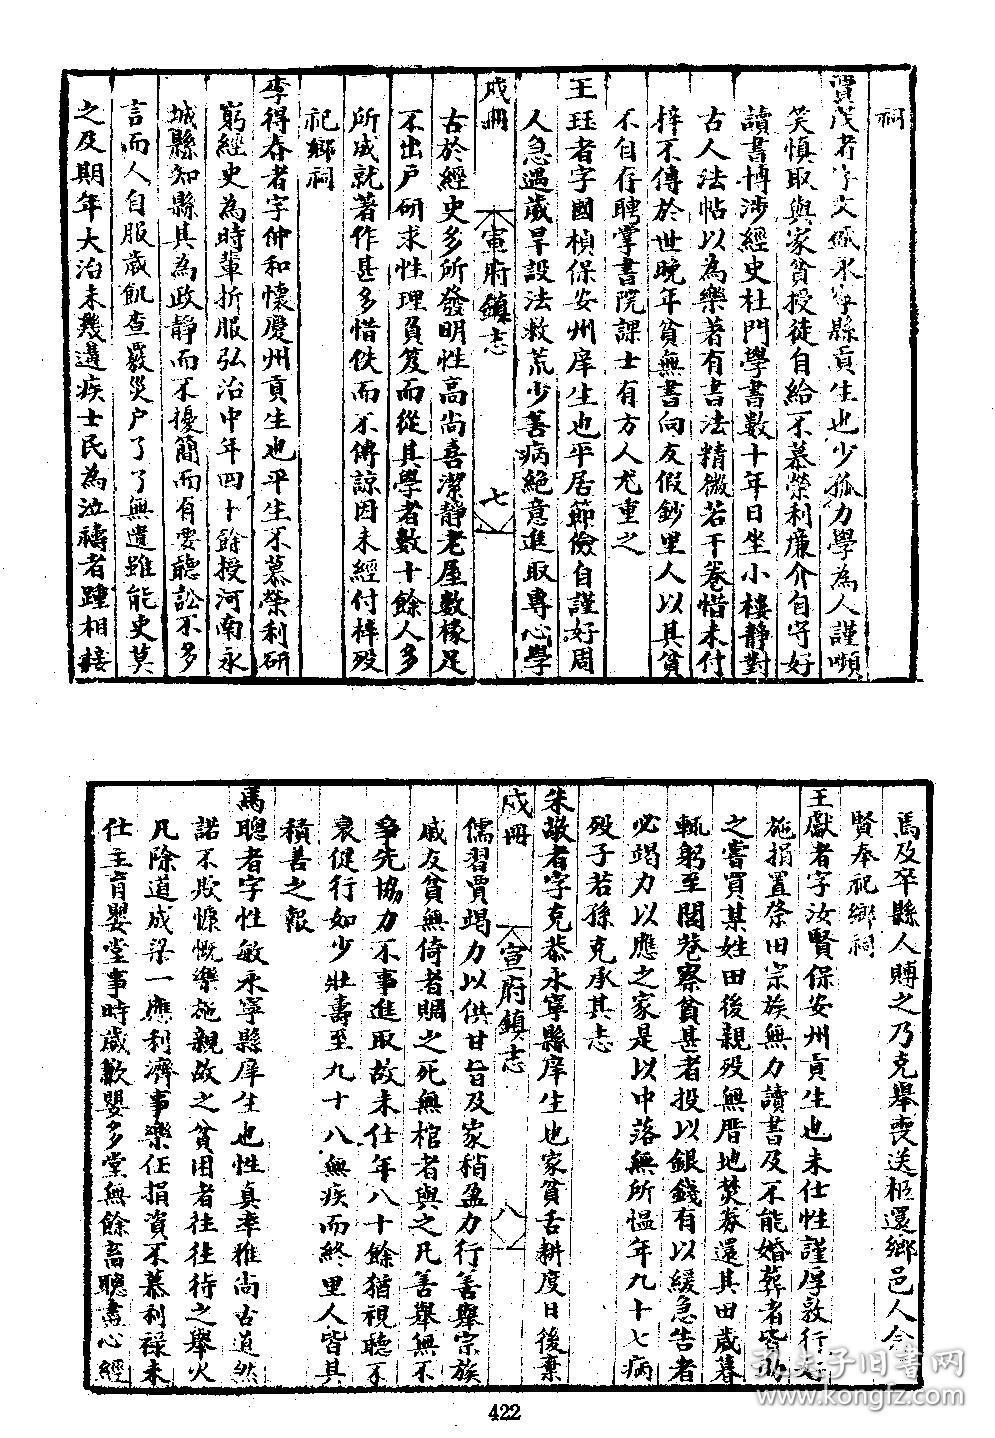 祠
賈茂者字文 永寧縣貢生也少孤力學為人謹嚬
笑慎取與家貧授徒自給不慕榮利廉介自守好
讀書博涉經史杜門學書數十年日坐小樓靜對
古人法帖以為樂著有書法精微若干卷惜未付
梓不傳於世晚年貧無書向友假鈔里人以其貧
不自存聘掌書院課士有方人尤重之
王珏者字國楨保安州庠生也平居節儉自謹好周
人急遇歲旱設法救荒少善病絕意進取專心學
成冊 宣府鎮志 七
古於經史多所發明性高尚喜潔靜老屋數椽足
不出戶研求性理負笈而從其學者數十餘人多
所成就著作甚多惜佚而不傳諒因未經付梓歿
祀鄉祠
李得春者字仲和懷慶州貢生也平生不慕榮利研
窮經史為時輩折服弘治中年四十餘授河南永
城縣知縣其為政靜而不擾簡而有要聽訟不多
言而人自服歲飢查覈災戶了了無遺雖能吏莫
之及期年大治未幾遘疾士民為泣禱者踵相接
馬及卒縣人賻之乃克舉喪送柩還鄉邑人令
賢奉祀鄉祠
王獻者字汝賢保安州貢生也未仕性謹厚敦行好
施捐置祭田宗族無力讀書及不能婚葬者皆助
之嘗買某姓田後親歿無厝地焚券還其田歲暮
輒躬至閭巷察貧甚者投以銀錢有以緩急告者
必竭力以應之家是以中落無所慍年九十七病
歿子若孫克承其志
朱敬者字克恭永寧縣庠生也家貧舌耕度日後棄
成冊 宣府鎮志 八
儒習賈竭力以供甘旨及家稍盈力行善舉宗族
戚友貧無倚者賙之死無棺者與之凡善舉無不
爭先協力不事進取故未仕年八十餘猶視聽不
衰健行如少壯壽至九十八無疾而終里人皆其
積善之報
馬聰者字性敏永寧縣庠生也性真率雅尚古道然
諾不欺慷慨樂施親故之貧困者往往待之舉火
凡除道成梁一應利濟事樂任捐資不慕利祿未
仕主育嬰堂事時歲歉嬰多堂無餘畜聰盡心經
422
孔夫子旧书网
kongfz.com